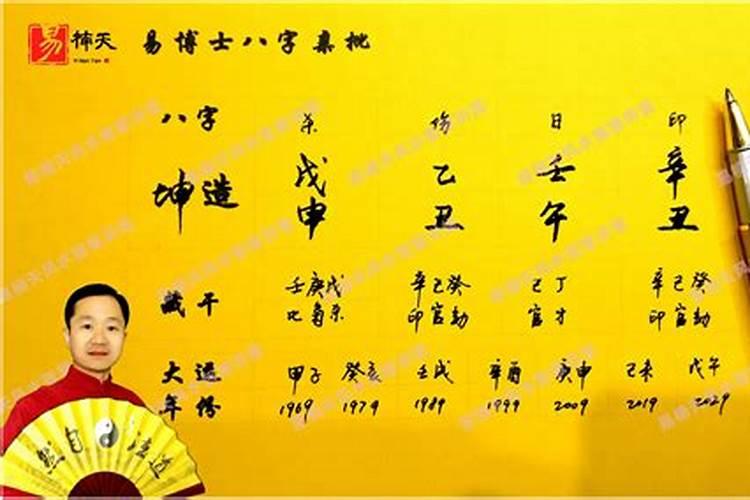 易 楠天
易博士八字集批
八字 杀 伤 日 印
坤造 戊 乙 壬 辛
申 丑 午 丑
藏干 壬庚戊 辛己癸 己丁 辛己癸
比枭杀 印官劫 官才 印官劫
大运 甲子 癸亥 壬戌 辛酉 庚申 己未 戊午
年份 1969 1979 1989 1999 2009 2019 2029
然自法道